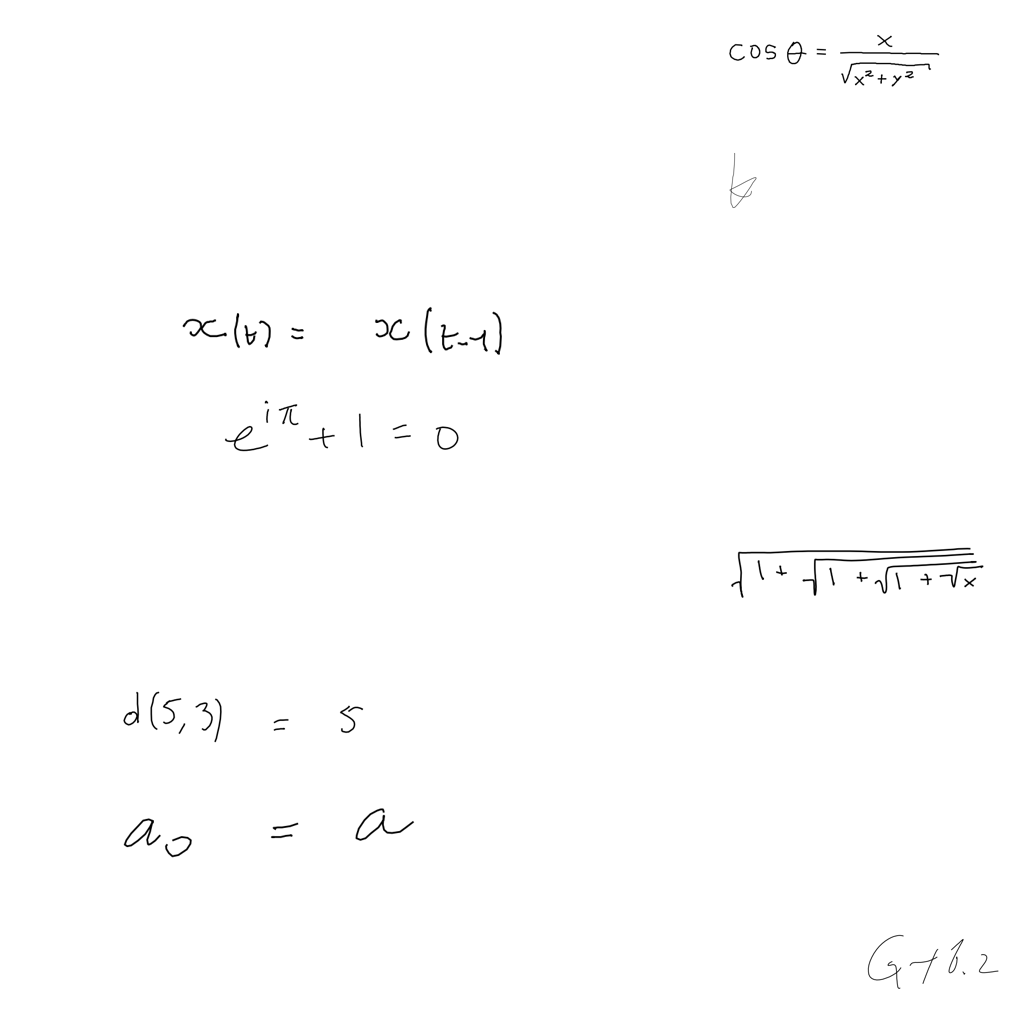 cos θ = x / √(x² + y²)
x(t) = x(t-1)
e^{iπ} + 1 = 0
√(1 + √(1 + √(1 + √x)))
d(5,3) = 5
a₀ = a